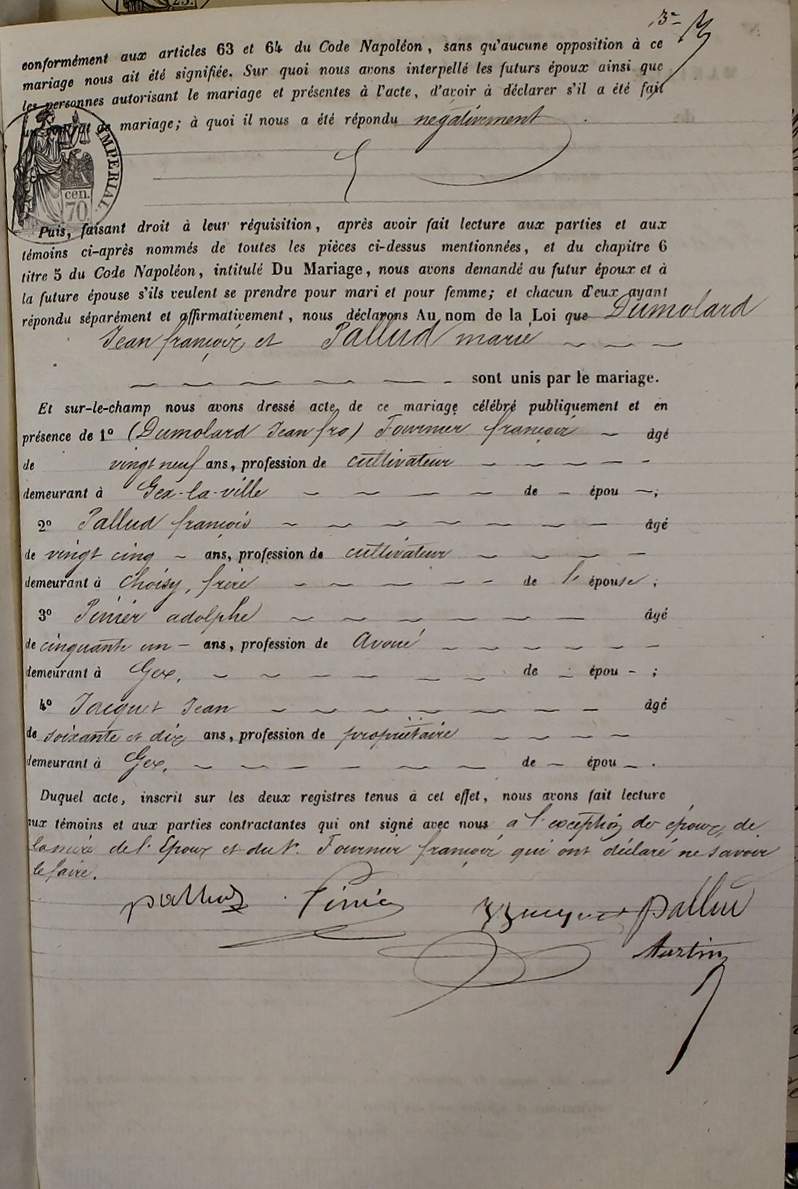 3
conformément aux articles 63 et 64 du Code Napoléon, sans qu'aucune opposition à ce
mariage nous ait été signifiée. Sur quoi nous avons interpellé les futurs époux ainsi que
les personnes autorisant le mariage et présentes à l'acte, d'avoir à déclarer s'il a été fait
de mariage; à quoi il nous a été répondu négativement.
IMPERIAL
cen.
70
Puis, faisant droit à leur réquisition, après avoir fait lecture aux parties et aux
témoins ci-après nommés de toutes les pièces ci-dessus mentionnées, et du chapitre 6
titre 5 du Code Napoléon, intitulé Du Mariage, nous avons demandé au futur époux et à
la future épouse s'ils veulent se prendre pour mari et pour femme; et chacun d'eux ayant
répondu séparément et affirmativement, nous déclarons Au nom de la Loi que Dumolard
Jean françois et Pallud marie
sont unis par le mariage.
Et sur-le-champ nous avons dressé acte de ce mariage célébré publiquement et en
présence de 1º (Dumolard Jean fro) Fournier françois — âgé
de vingt neuf ans, profession de cultivateur
demeurant à Gex-la-ville — de — épou —;
2º Pallud françois — âgé
de vingt cinq — ans, profession de cultivateur
demeurant à Choisy, frère — de l'épouse;
3º Pinier adolphe — âgé
de cinquante un — ans, profession de Avoué
demeurant à Gex, — de — épou —;
4º Jacquet Jean — âgé
de soixante et dix ans, profession de propriétaire
demeurant à Gex, — de — épou —.
Duquel acte, inscrit sur les deux registres tenus à cet effet, nous avons fait lecture
aux témoins et aux parties contractantes qui ont signé avec nous a l'exception des époux, de
la mère de l'Epoux et du Sr. Fournier françois qui ont déclaré ne savoir
le faire.
pallud Pinier Jacquet pallud
Martin